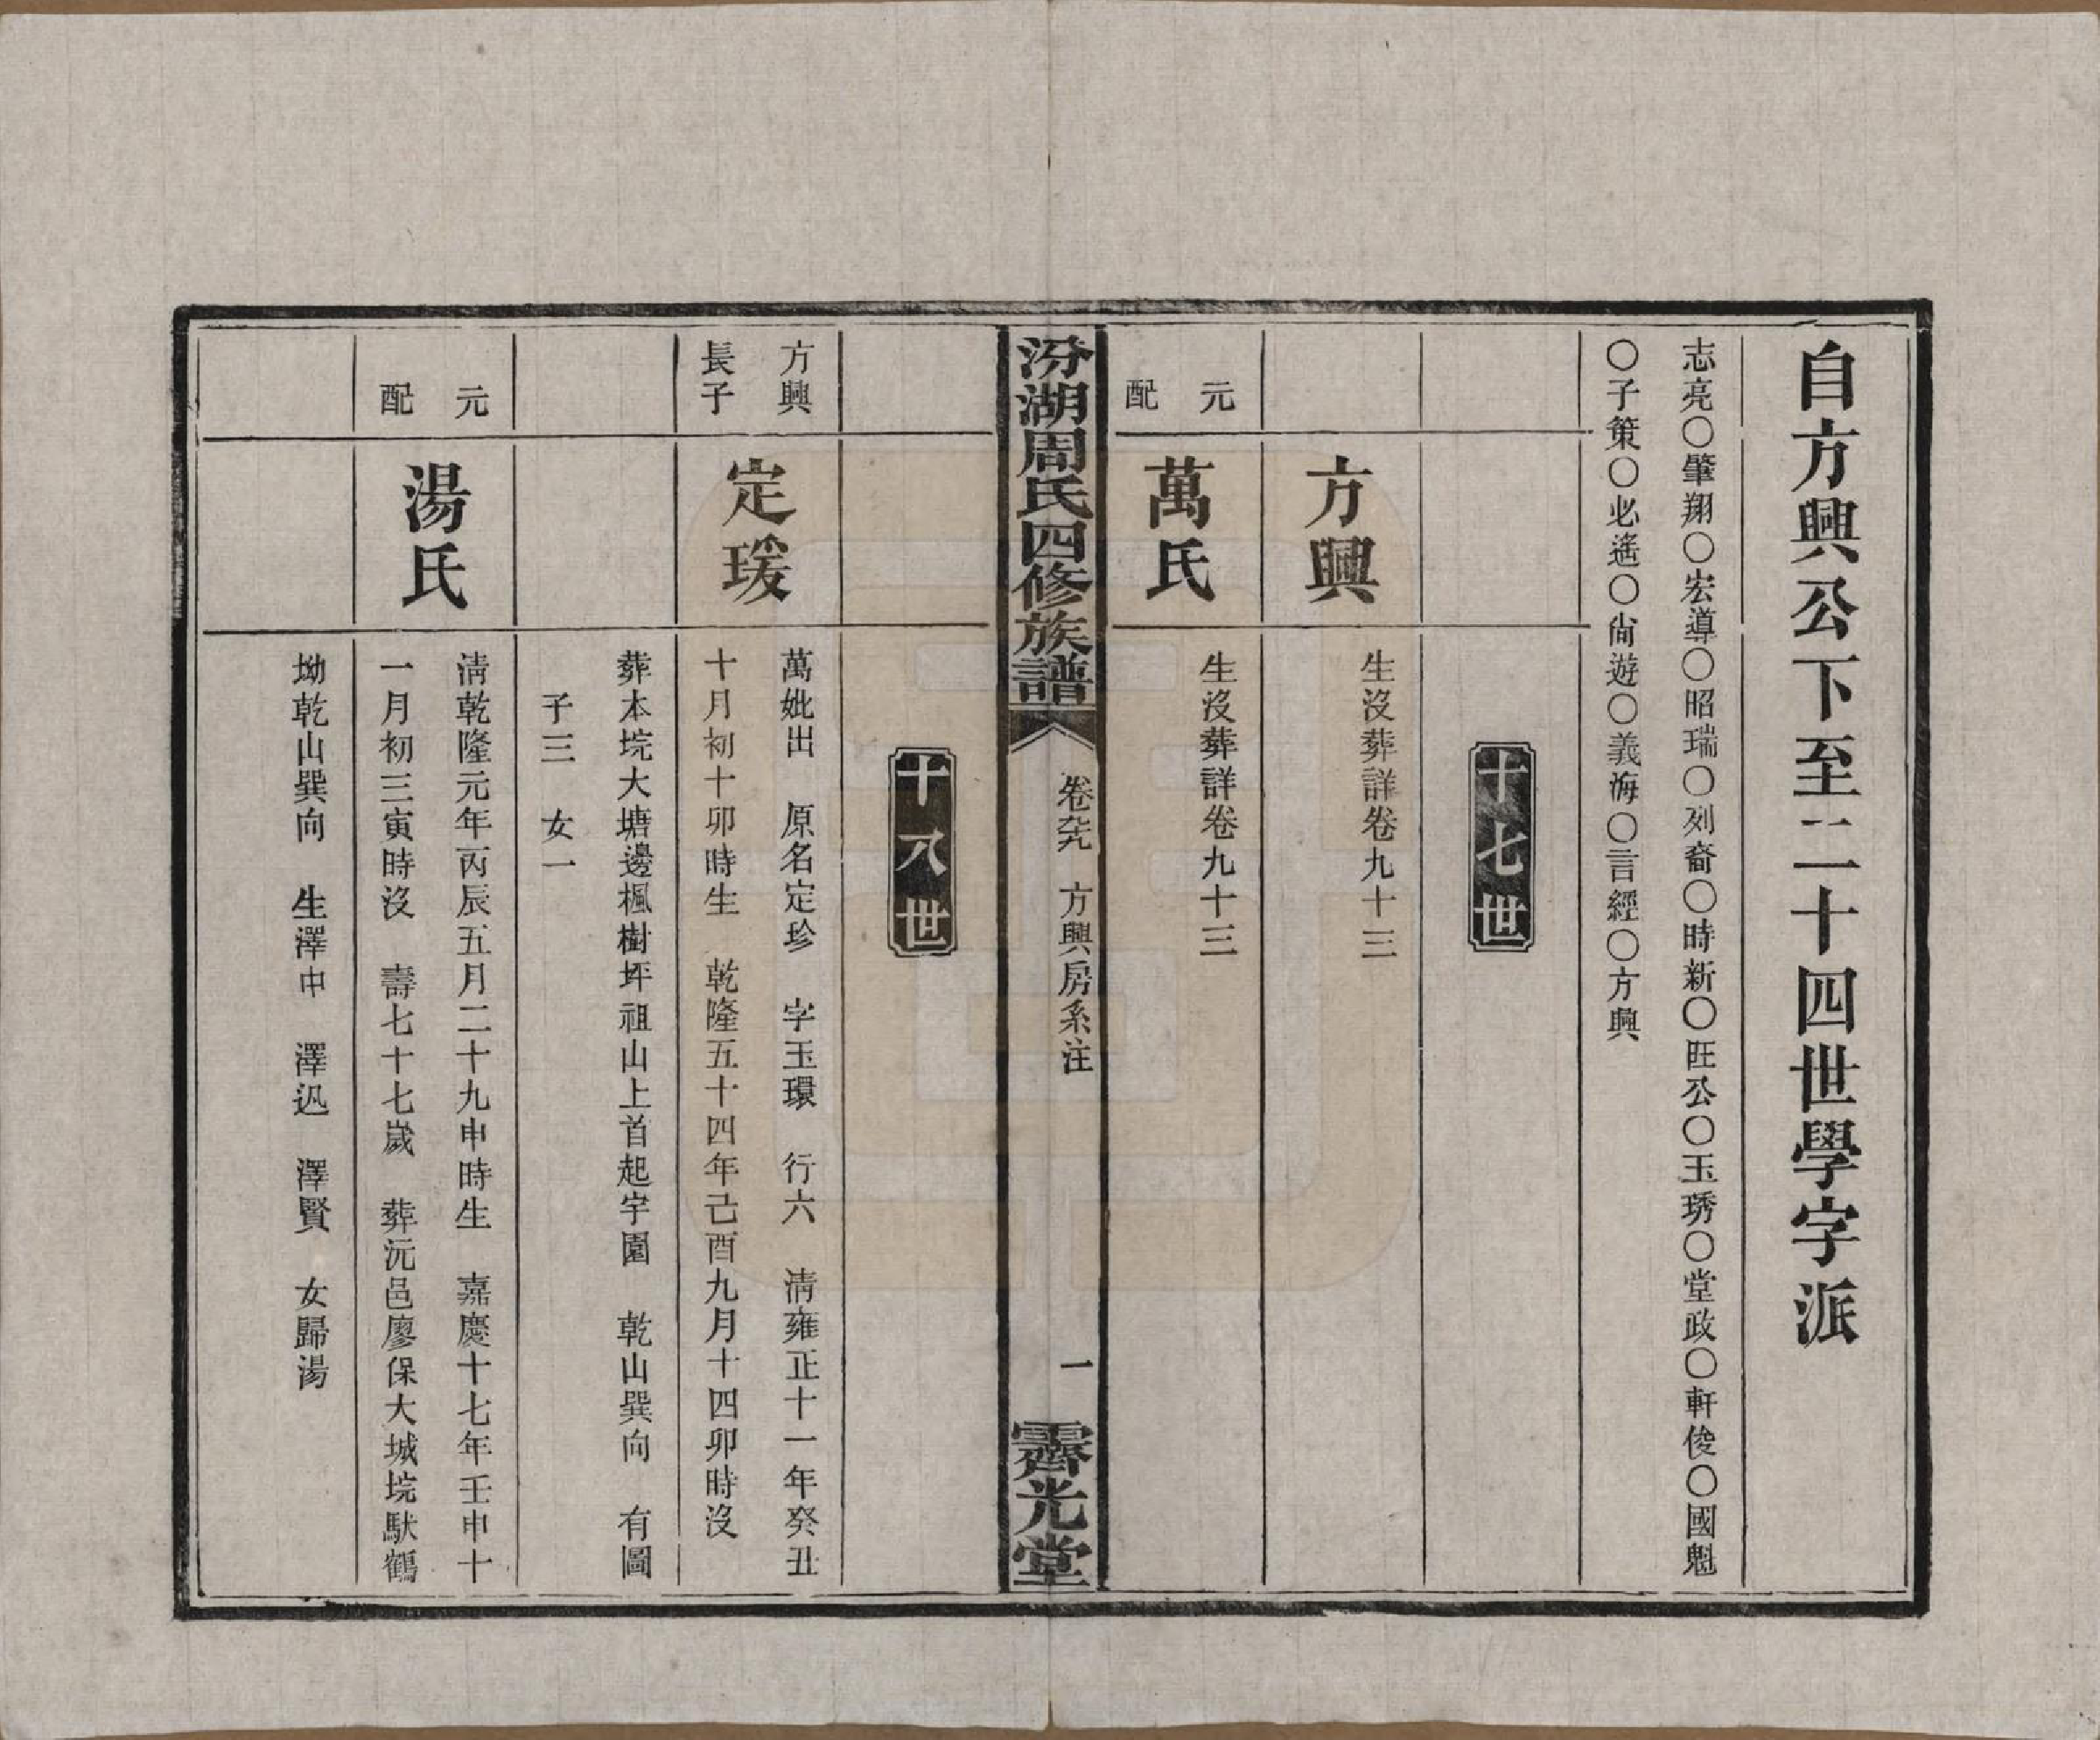 自方興公下至二十四世學字派
志亮〇肇翔〇宏導〇昭瑞〇列裔〇時新〇旺公〇玉琇〇堂政〇軒俊〇國魁
〇子策〇必遙〇尙遊〇義海〇言經〇方興
十七世
方興
生沒葬詳卷九十三
元配
萬氏
生沒葬詳卷九十三
汾湖周氏四修族譜
卷九九
方興房系注
一
霽光堂
十八世
方興長子
定瑗
萬妣出 原名定珍 字玉環 行六 淸雍正十一年癸丑
十月初十卯時生 乾隆五十四年己酉九月十四卯時沒
葬本垸大塘邊楓樹坪祖山上首起宇園 乾山巽向 有圖
子三 女一
元配
湯氏
淸乾隆元年丙辰五月二十九申時生 嘉慶十七年壬申十
一月初三寅時沒 壽七十七歲 葬沅邑廖保大城垸馱鶴
坳乾山巽向 生澤中 澤迅 澤賢 女歸湯